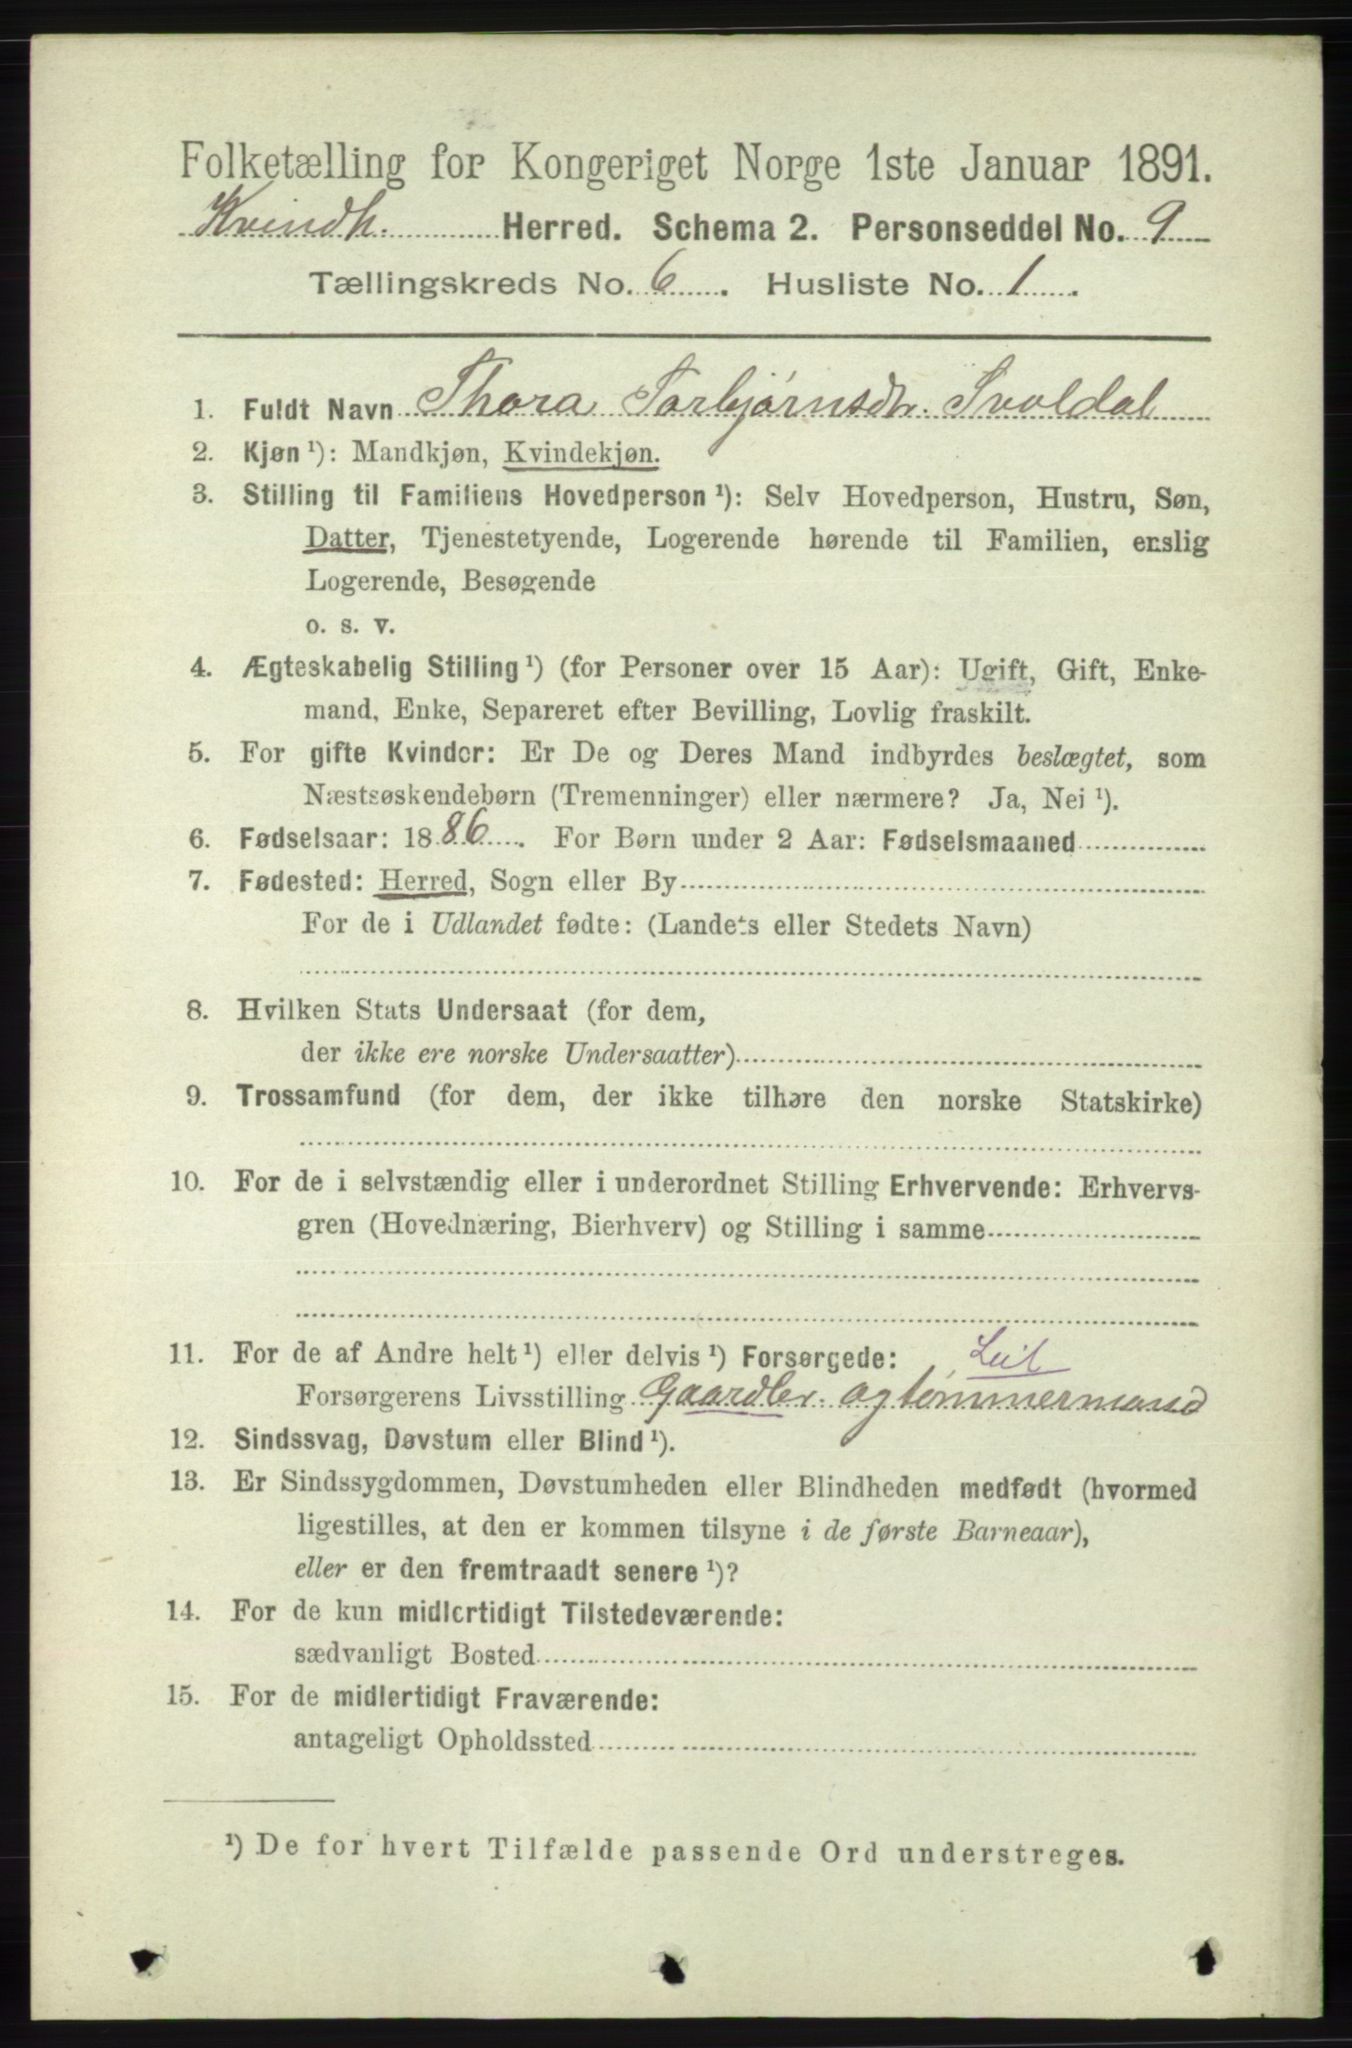 Folketælling for Kongeriget Norge 1ste Januar 1891.
Kvindh. Herred. Schema 2. Personseddel No. 9
Tællingskreds No. 6. Husliste No. 1.
1. Fuldt Navn Thora Torbjørnsdtr. Svoldal
2. Kjøn ¹): Mandkjøn, Kvindekjøn.
3. Stilling til Familiens Hovedperson ¹): Selv Hovedperson, Hustru, Søn,
Datter, Tjenestetyende, Logerende hørende til Familien, enslig
Logerende, Besøgende
o. s. v.
4. Ægteskabelig Stilling ¹) (for Personer over 15 Aar): Ugift, Gift, Enke-
mand, Enke, Separeret efter Bevilling, Lovlig fraskilt.
5. For gifte Kvinder: Er De og Deres Mand indbyrdes beslægtet, som
Næstsøskendebørn (Tremenninger) eller nærmere? Ja, Nei ¹).
6. Fødselsaar: 1886. For Børn under 2 Aar: Fødselsmaaned
7. Fødested: Herred, Sogn eller By
For de i Udlandet fødte: (Landets eller Stedets Navn)
8. Hvilken Stats Undersaat (for dem,
der ikke ere norske Undersaatter)
9. Trossamfund (for dem, der ikke tilhøre den norske Statskirke)
10. For de i selvstændig eller i underordnet Stilling Erhvervende: Erhvervs-
gren (Hovednæring, Bierhverv) og Stilling i samme
11. For de af Andre helt ¹) eller delvis ¹) Forsørgede: Leil
Forsørgerens Livsstilling Gaardbr. og tømmermand
12. Sindssvag, Døvstum eller Blind ¹).
13. Er Sindssygdommen, Døvstumheden eller Blindheden medfødt (hvormed
ligestilles, at den er kommen tilsyne i de første Barneaar),
eller er den fremtraadt senere ¹)?
14. For de kun midlertidigt Tilstedeværende:
sædvanligt Bosted
15. For de midlertidigt Fraværende:
antageligt Opholdssted
¹) De for hvert Tilfælde passende Ord understreges.